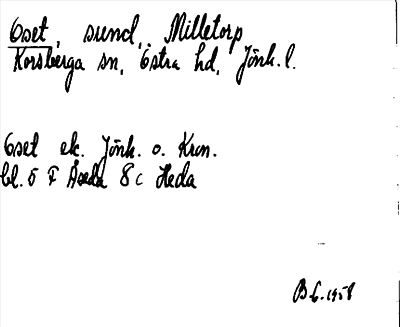 Öset, sund, Milletorp
Korsberga sn, Östra hd, Jönk. l.
Öset ek. Jönk. o. Kron.
bl. 5 F Åseda 8 c Heda
1958